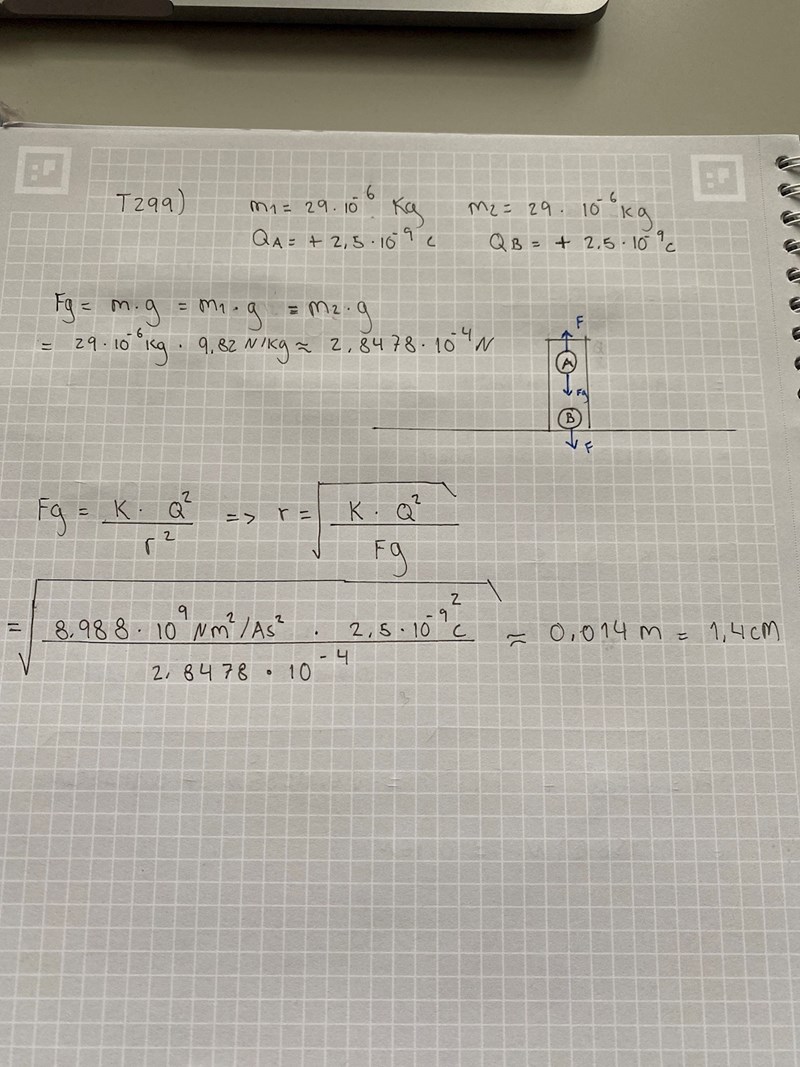 T299) m1 = 29·10⁻⁶ Kg m2 = 29· 10⁻⁶ kg
QA = + 2,5·10⁻⁹ C QB = + 2,5·10⁻⁹ C
Fg = m·g = m1·g = m2·g
= 29·10⁻⁶kg · 9,82 N/kg ≈ 2,8478·10⁻⁴ N
F
A
Fg
B
F
Fg = K· Q² / r² => r = √(K· Q² / Fg)
= √(8,988·10⁹ Nm²/As² · 2,5·10⁻⁹² C / 2,8478·10⁻⁴) ≈ 0,014 m = 1,4 cm